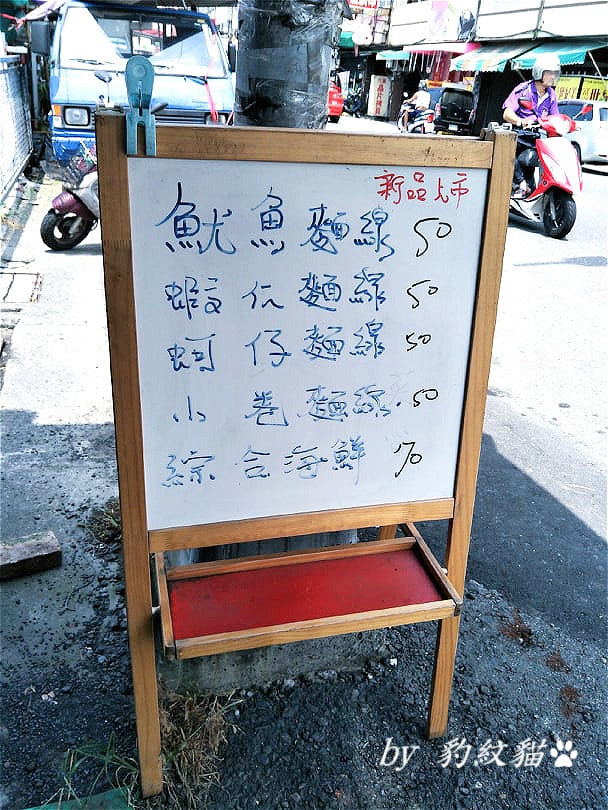 新品上市
魷魚麵線 50
蝦仁麵線 50
蚵仔麵線 50
小卷麵線 50
綜合海鮮 70
by 豹紋貓